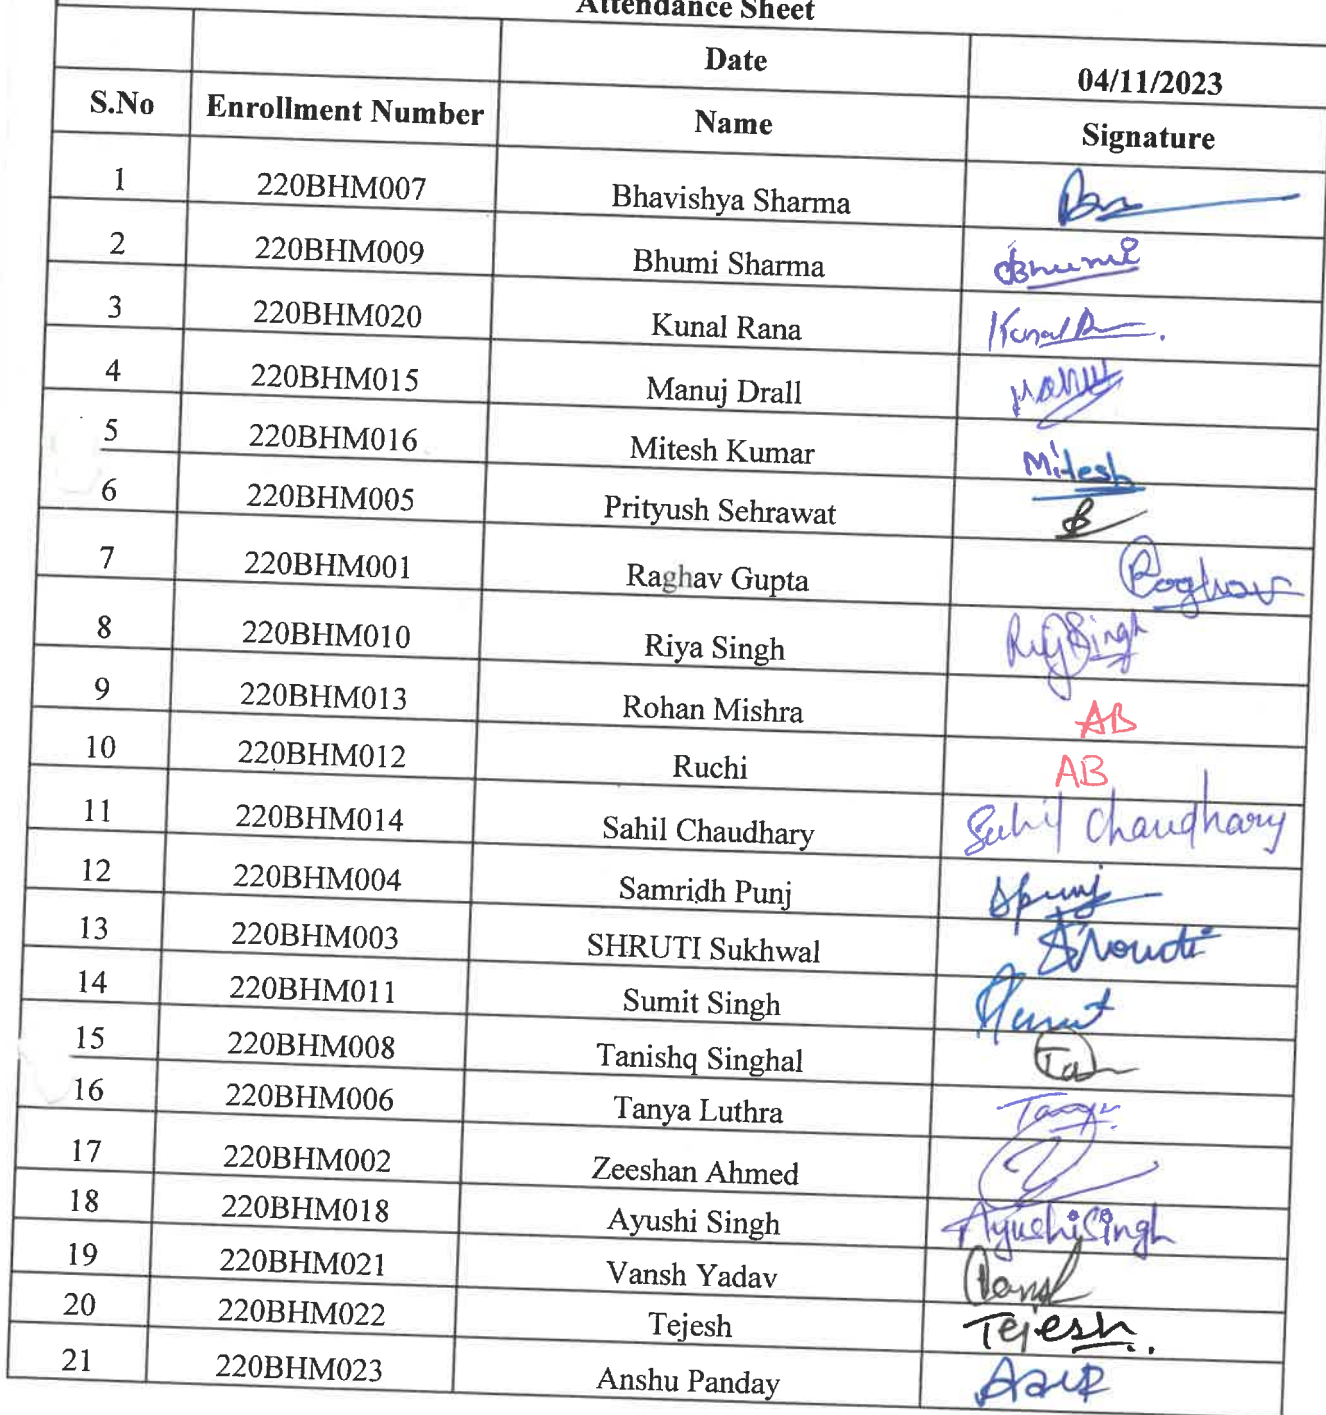 Attendance Sheet
Date 04/11/2023
S.No Enrollment Number Name Signature
1 220BHM007 Bhavishya Sharma
2 220BHM009 Bhumi Sharma Bhumi
3 220BHM020 Kunal Rana Kunal R
4 220BHM015 Manuj Drall Manuj
5 220BHM016 Mitesh Kumar Mitesh
6 220BHM005 Prityush Sehrawat
7 220BHM001 Raghav Gupta Raghav
8 220BHM010 Riya Singh Riya Singh
9 220BHM013 Rohan Mishra AB
10 220BHM012 Ruchi AB
11 220BHM014 Sahil Chaudhary Sahil Chaudhary
12 220BHM004 Samridh Punj Spunj
13 220BHM003 SHRUTI Sukhwal
14 220BHM011 Sumit Singh Sumit
15 220BHM008 Tanishq Singhal Tan
16 220BHM006 Tanya Luthra Tanya
17 220BHM002 Zeeshan Ahmed
18 220BHM018 Ayushi Singh Ayushi Singh
19 220BHM021 Vansh Yadav Vansh
20 220BHM022 Tejesh Tejesh.
21 220BHM023 Anshu Panday